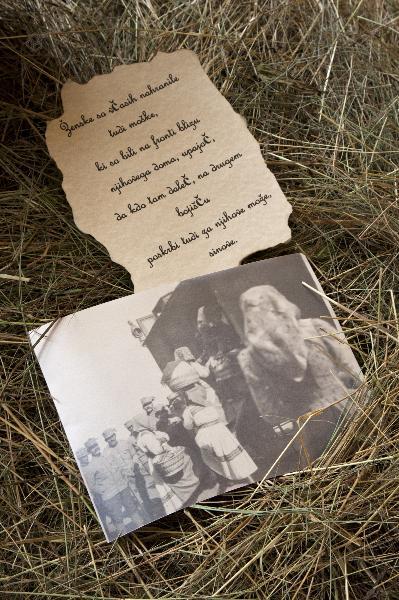 Ženske so včasih nahranile
tudi moške,
ki so bili na fronti blizu
njihovega doma, upajoč,
da kdo tam daleč, na drugem
bojišču
poskrbi tudi za njihove može,
sinove.